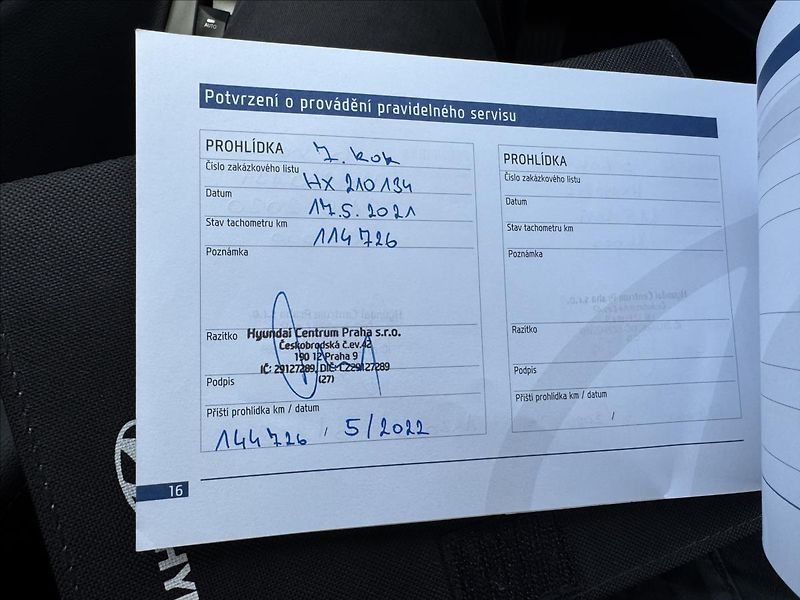 AUTO
Potvrzení o provádění pravidelného servisu
PROHLÍDKA 7. rok
Číslo zakázkového listu HX 210134
Datum 17.5.2021
Stav tachometru km 114726
Poznámka
Razítko Hyundai Centrum Praha s.r.o.
Českobrodská č.ev.42
190 12 Praha 9
IČ: 29127289, DIČ: CZ29127289
(27)
Podpis
Příští prohlídka km / datum
144726 / 5/2022
PROHLÍDKA
Číslo zakázkového listu
Datum
Stav tachometru km
Poznámka
Razítko
Podpis
Příští prohlídka km / datum
/
16
HY